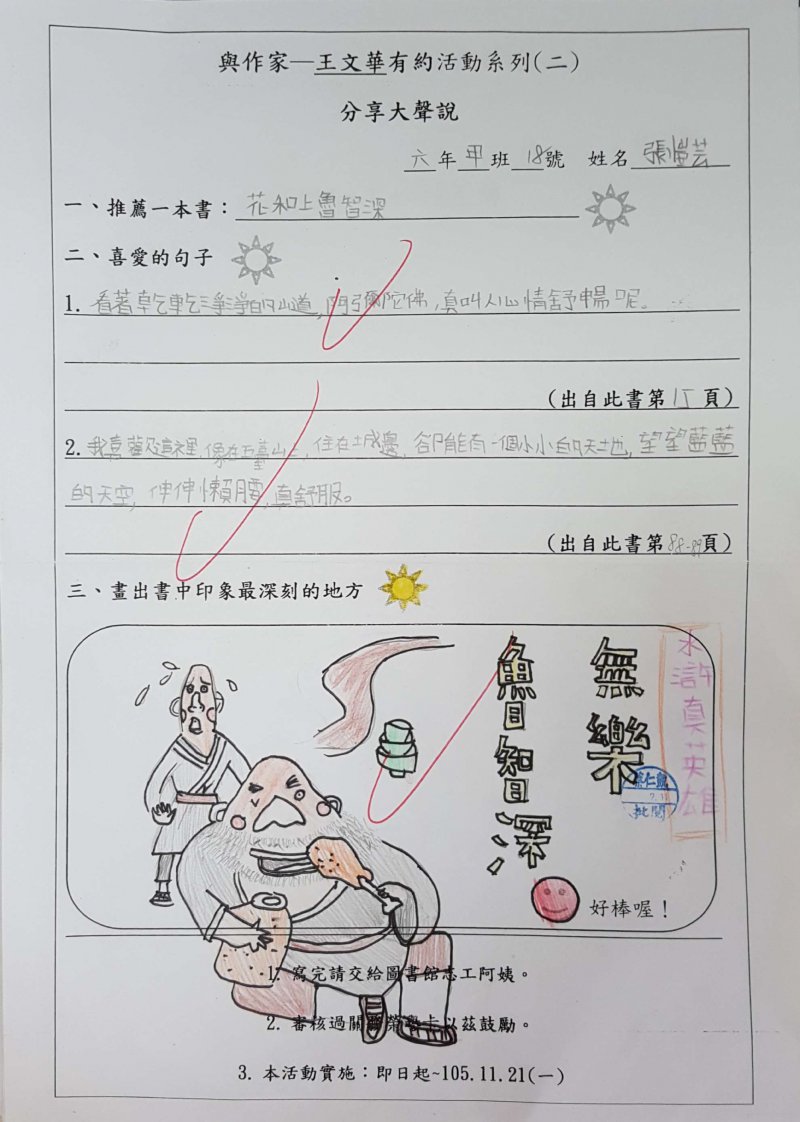 與作家—王文華有約活動系列(二)
分享大聲說
六年甲班18號 姓名張愷芸
一、推薦一本書：花和上魯智深
二、喜愛的句子
1. 看著乾乾淨淨的山道,阿彌陀佛,真叫人心情舒暢呢。
(出自此書第15頁)
2. 我喜歡這裡,像在五臺山上,住在城邊,卻能有一個小小的天地,望望藍藍
的天空,伸伸懶腰,真舒服。
(出自此書第88-89頁)
三、畫出書中印象最深刻的地方
水滸真英雄
無樂
魯智深
批閱
好棒喔！
1. 寫完請交給圖書館志工阿姨。
2. 審核過關蓋榮譽卡以茲鼓勵。
3. 本活動實施：即日起~105.11.21(一)